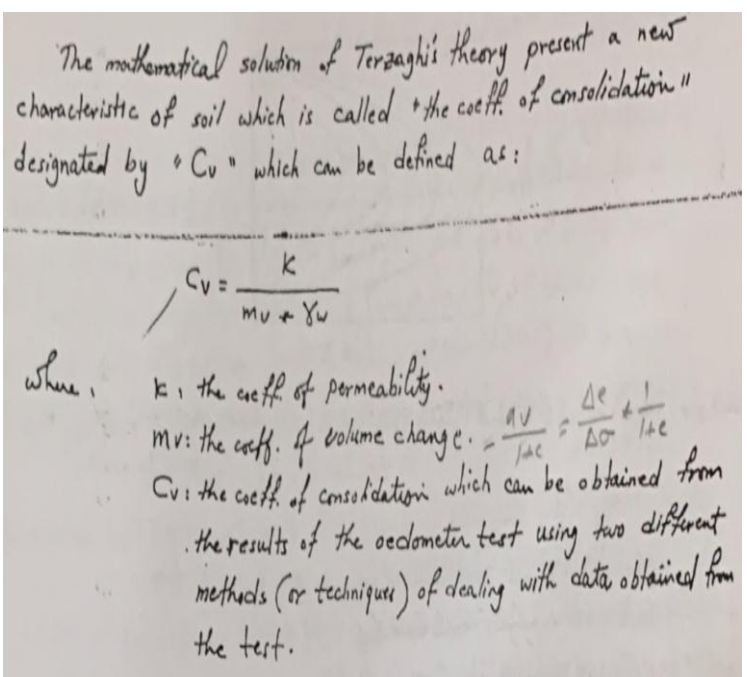 The mathematical solution of Terzaghi's theory present a new
characteristic of soil which is called "the coeff. of consolidation"
designated by "Cv" which can be defined as:
Cv = k / (mv * γw)
where, k, the coeff. of permeability.
mv: the coeff. of volume change. = av/(1+e) = Δe/Δσ * 1/(1+e)
Cv: the coeff. of consolidation which can be obtained from
the results of the oedometer test using two different
methods (or techniques) of dealing with data obtained from
the test.